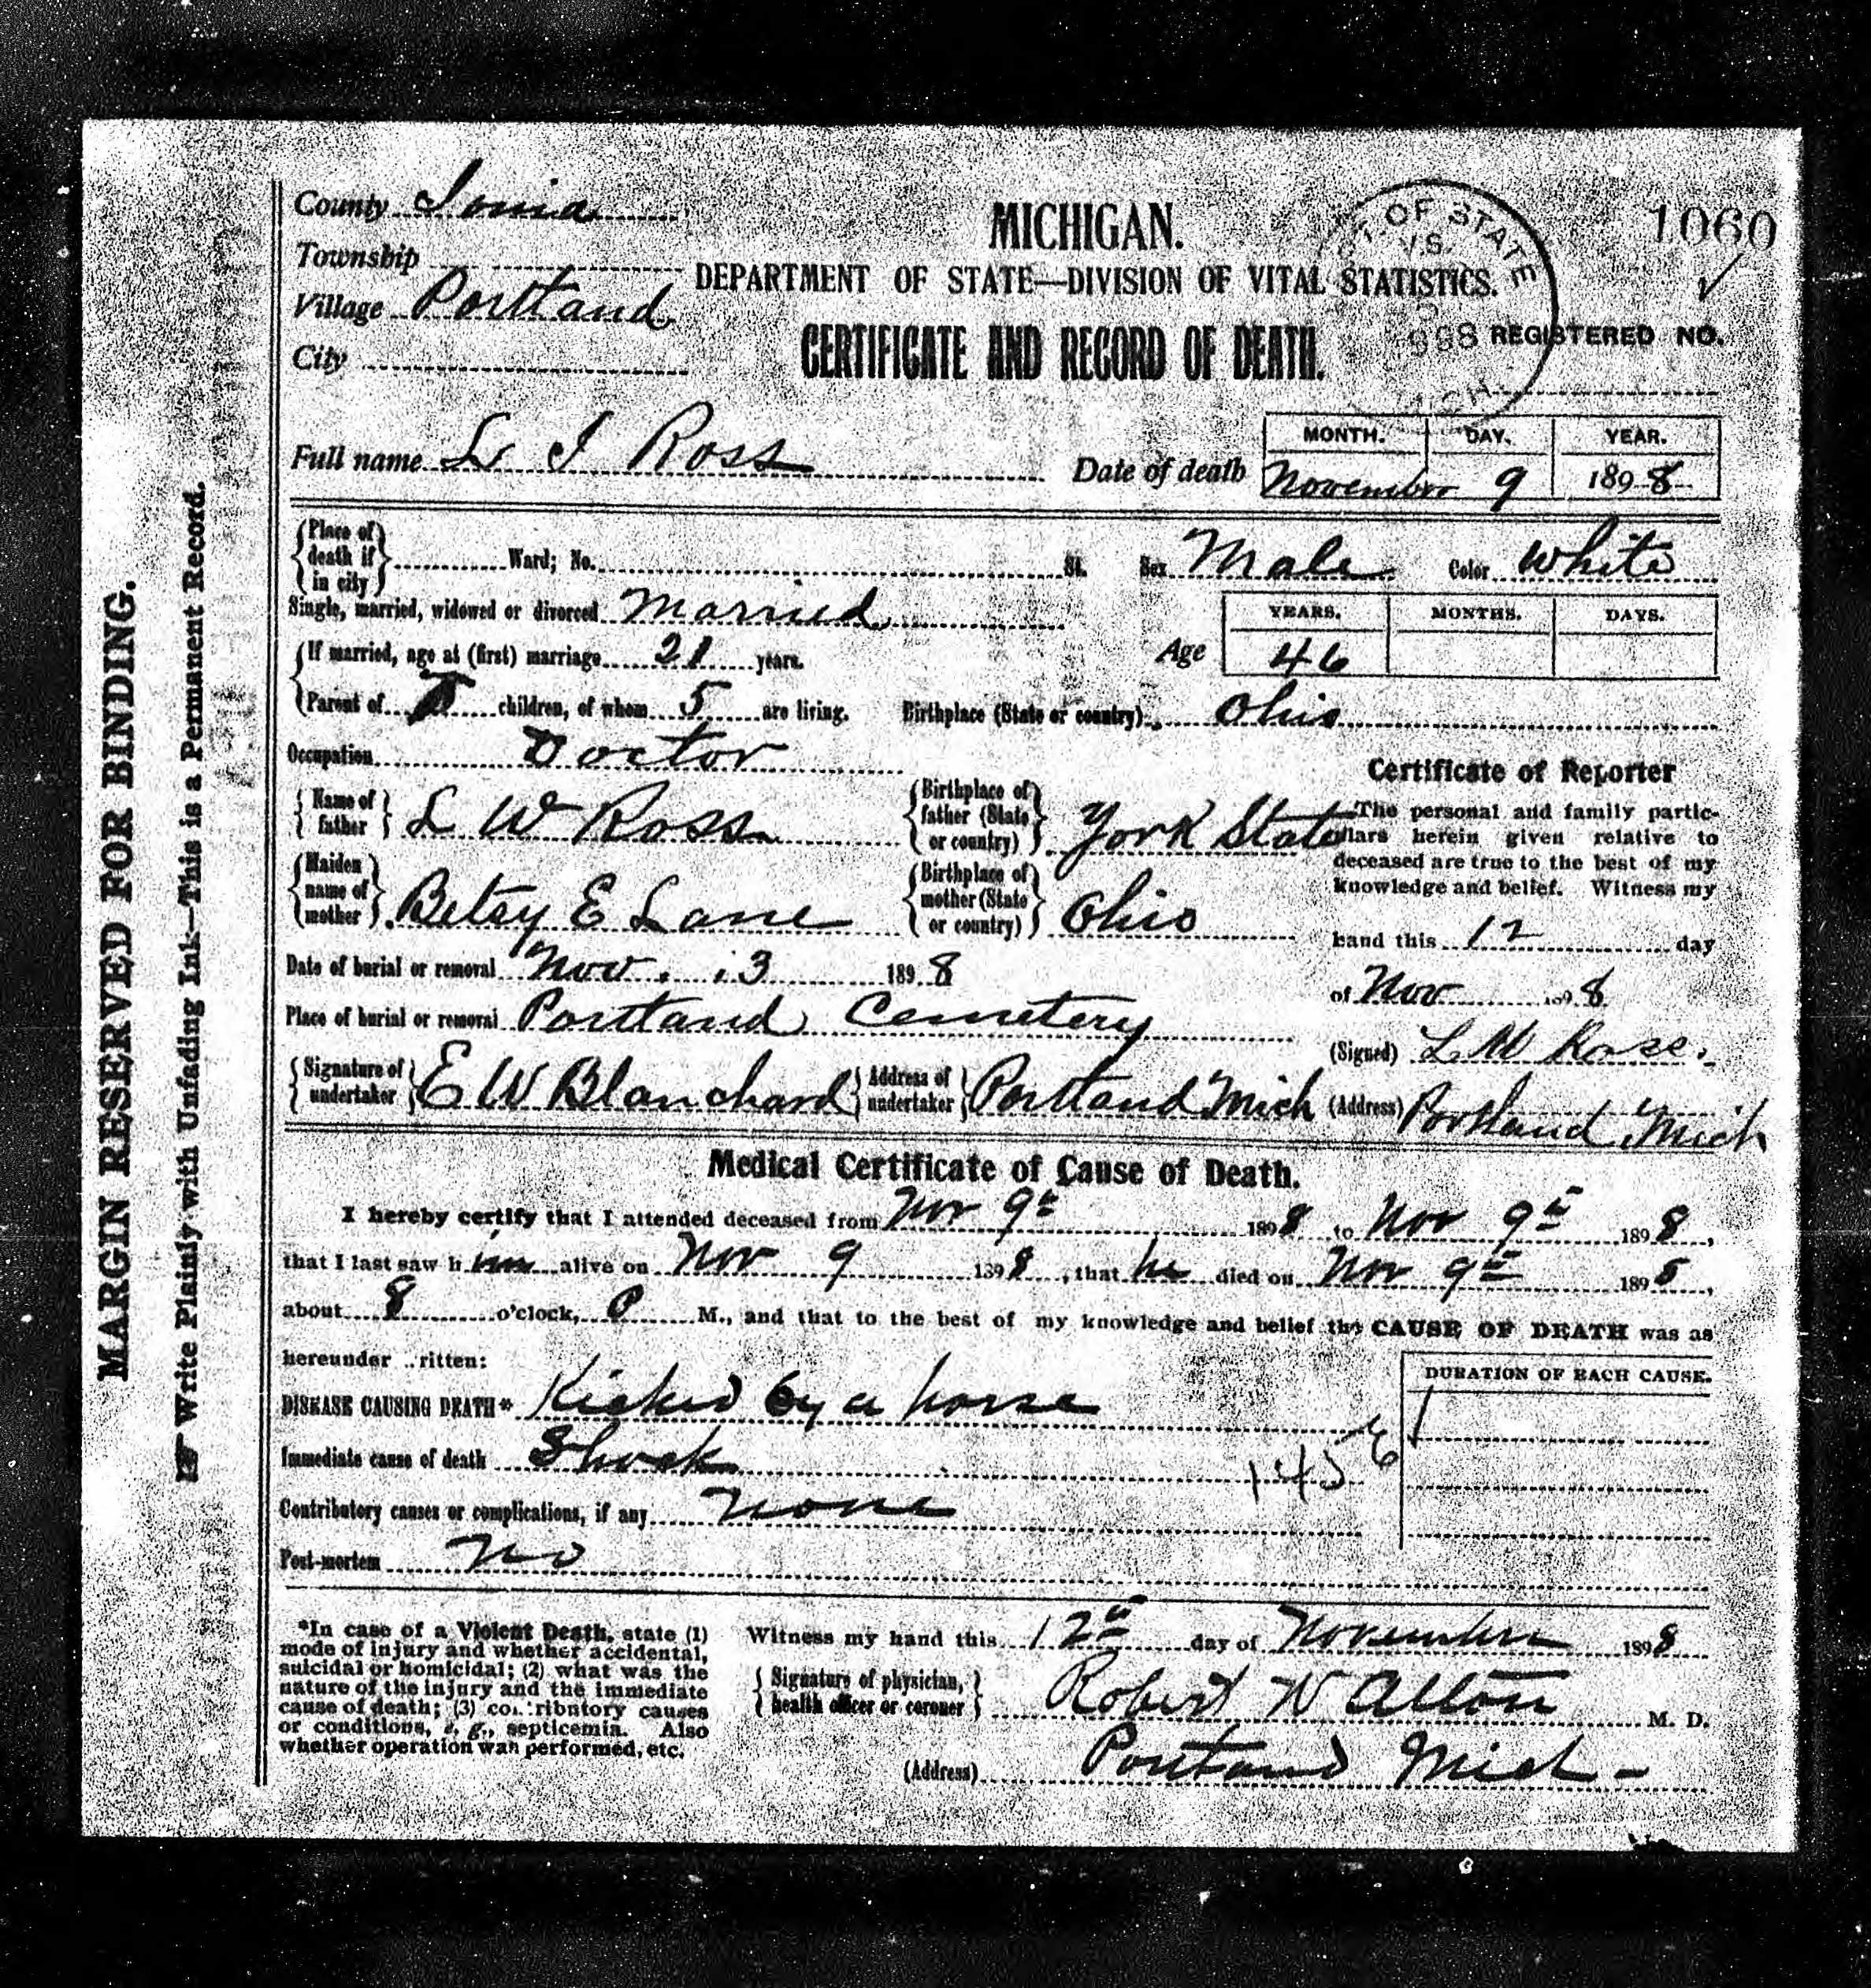 County Ionia
MICHIGAN.
1060
Township
DEPARTMENT OF STATE—DIVISION OF VITAL STATISTICS.
OF STATE
V.S.
Village Portland
REGISTERED NO.
City
CERTIFICATE AND RECORD OF DEATH.
Full name L I Ross
Date of death
MONTH. DAY. YEAR.
November 9 1898
Place of death if in city Ward; No. St. Sex Male Color White
Single, married, widowed or divorced Married
Age
YEARS. MONTHS. DAYS.
46
If married, age at (first) marriage 21 years.
Parent of children, of whom 5 are living. Birthplace (State or country) Ohio
Occupation Doctor
Name of father L W Ross
Birthplace of father (State or country) York State
Maiden name of mother Betsy E Lane
Birthplace of mother (State or country) Ohio
Certificate of Reporter
The personal and family partic-
ulars herein given relative to
deceased are true to the best of my
knowledge and belief. Witness my
hand this 12 day
of Nov 1898
(Signed) L W
(Address) Portland Mich
Date of burial or removal Nov. 13 1898
Place of burial or removal Portland Cemetery
Signature of undertaker E W Blanchard
Address of undertaker Portland Mich
Medical Certificate of Cause of Death.
I hereby certify that I attended deceased from Nov 9th 1898 to Nov 9th 1898,
that I last saw him alive on Nov 9 1898, that he died on Nov 9th 1898,
about 8 o'clock, P M., and that to the best of my knowledge and belief the CAUSE OF DEATH was as
hereunder written:
DURATION OF EACH CAUSE.
DISEASE CAUSING DEATH* Kicked by a horse
Immediate cause of death Shock
145
Contributory causes or complications, if any None
Post-mortem No
*In case of a Violent Death, state (1)
mode of injury and whether accidental,
suicidal or homicidal; (2) what was the
nature of the injury and the immediate
cause of death; (3) contributory causes
or conditions, e. g., septicemia. Also
whether operation was performed, etc.
Witness my hand this 12th day of November 1898
Signature of physician, health officer or coroner Robert W Alton M. D.
(Address) Portland Mich
MARGIN RESERVED FOR BINDING.
Write Plainly with Unfading Ink—This is a Permanent Record.